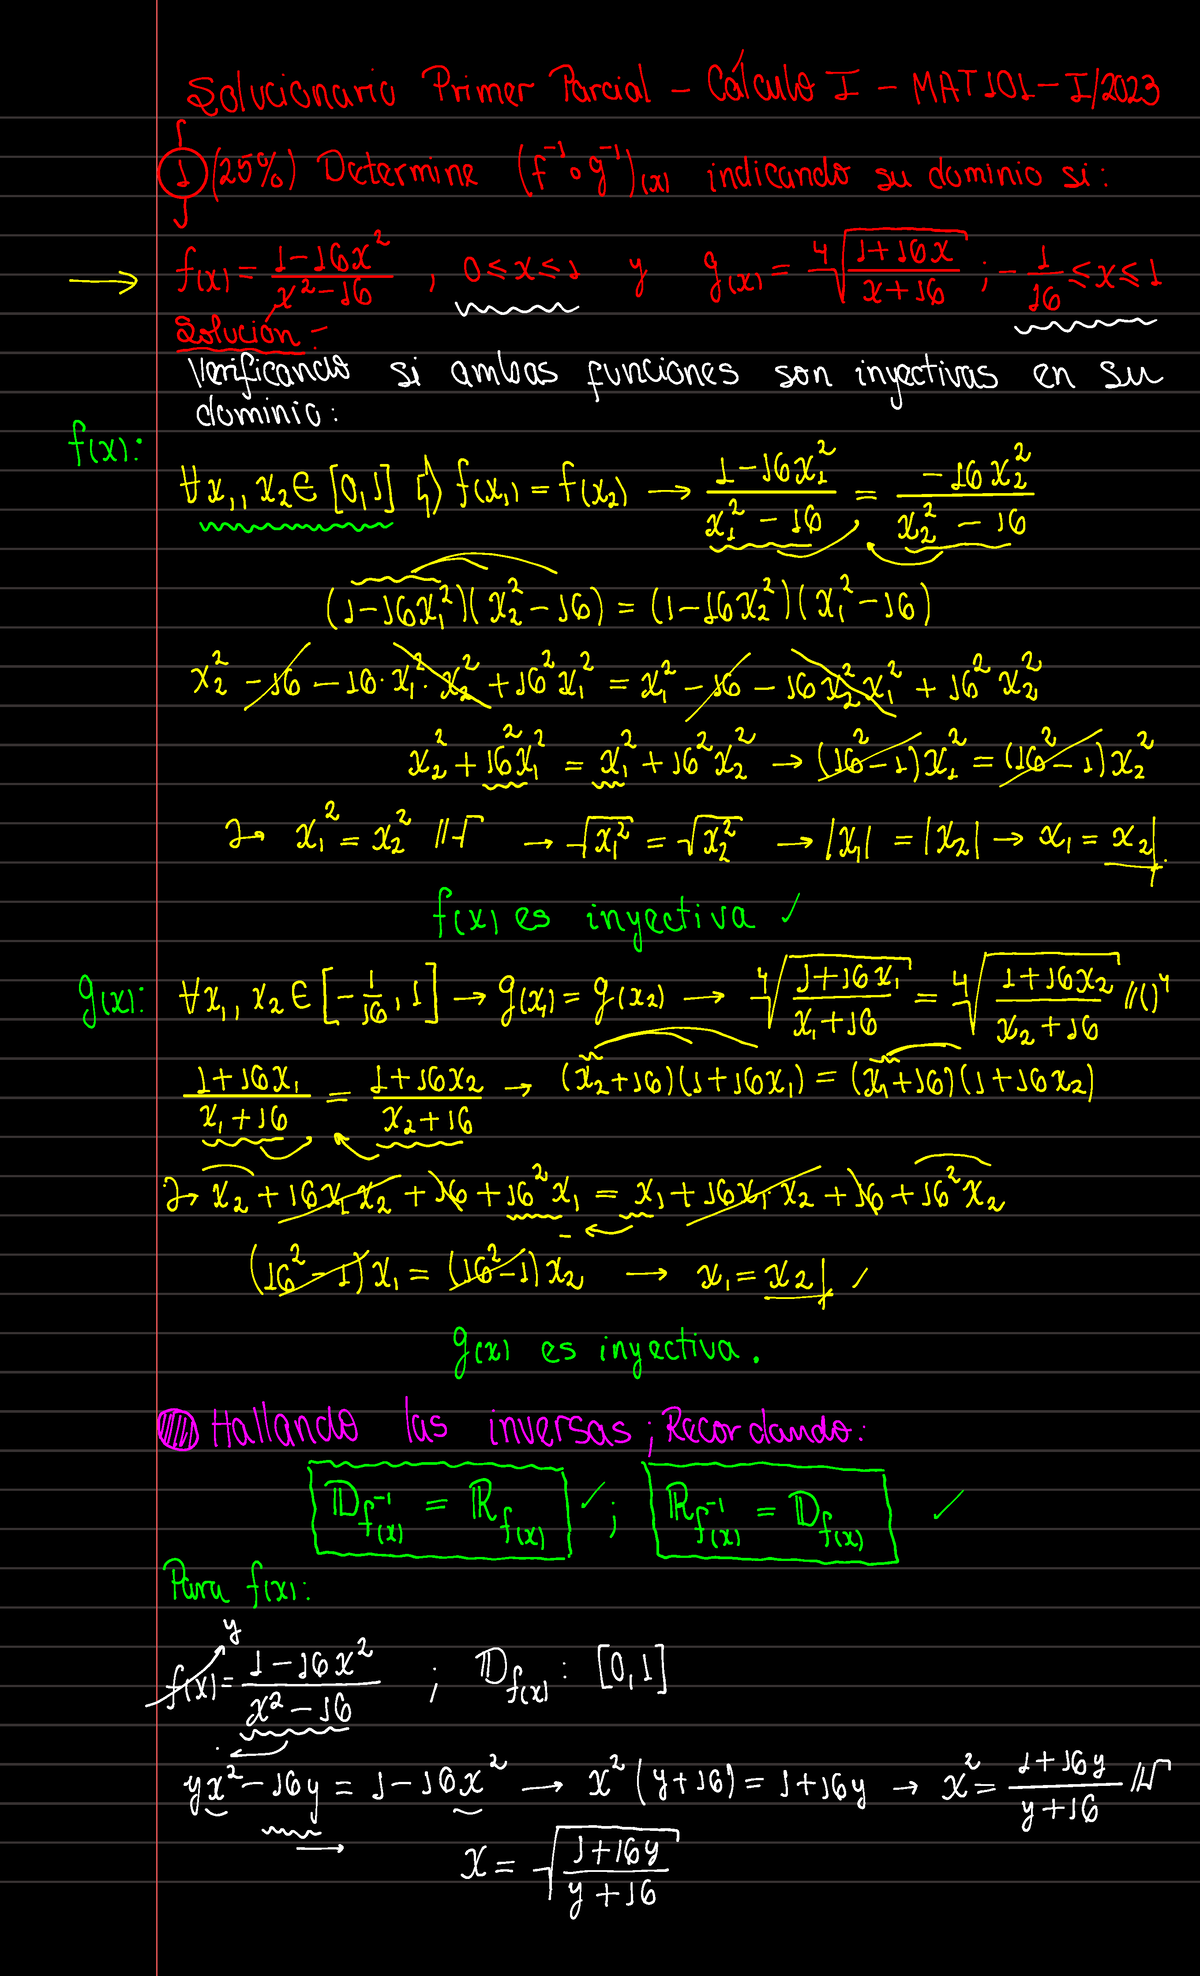 Solucionario Primer Parcial - Cálculo I - MAT101 - I/2023
1 (25%) Determine (f⁻¹∘g⁻¹)(x) indicando su dominio si:
→ f(x) = (1-16x²)/(x²-16) , 0≤x≤1 y g(x) = ⁴√((1+16x)/(x+16)) ; -1/16 ≤x≤1
Solución:-
Verificando si ambas funciones son inyectivas en su
dominio:
f(x):
∀x₁, x₂ ∈ [0,1] ↳ f(x₁) = f(x₂) → (1-16x₁²)/(x₁²-16) = (-16x₂²)/(x₂²-16)
(1-16x₁²)(x₂²-16) = (1-16x₂²)(x₁²-16)
x₂² - 16 - 16·x₁²·x₂² + 16²x₁² = x₁² - 16 - 16x₂²x₁² + 16²x₂²
x₂² + 16²x₁² = x₁² + 16²x₂² → (16²-1)x₁² = (16²-1)x₂²
↳ x₁² = x₂² //√ → √(x₁²) = √(x₂²) → |x₁| = |x₂| → x₁ = x₂
f(x) es inyectiva ✓
g(x): ∀x₁, x₂ ∈ [-1/16, 1] → g(x₁) = g(x₂) → ⁴√((1+16x₁)/(x₁+16)) = ⁴√((1+16x₂)/(x₂+16)) //()⁴
(1+16x₁)/(x₁+16) = (1+16x₂)/(x₂+16) → (x₂+16)(1+16x₁) = (x₁+16)(1+16x₂)
↳ x₂ + 16x₁x₂ + 16 + 16²x₁ = x₁ + 16x₁·x₂ + 16 + 16²x₂
(16²-1)x₁ = (16²-1)x₂ → x₁ = x₂ ✓
g(x) es inyectiva.
Hallando las inversas; Recordando:
𝔻f⁻¹(x) = ℝf(x) ✓ ; ℝf⁻¹(x) = 𝔻f(x) ✓
Para f(x):
y
f(x) = (1-16x²)/(x²-16) ; 𝔻f(x) : [0,1]
yx² - 16y = 1-16x² → x²(y+16) = 1+16y → x² = (1+16y)/(y+16) //√
x = √((1+16y)/(y+16))